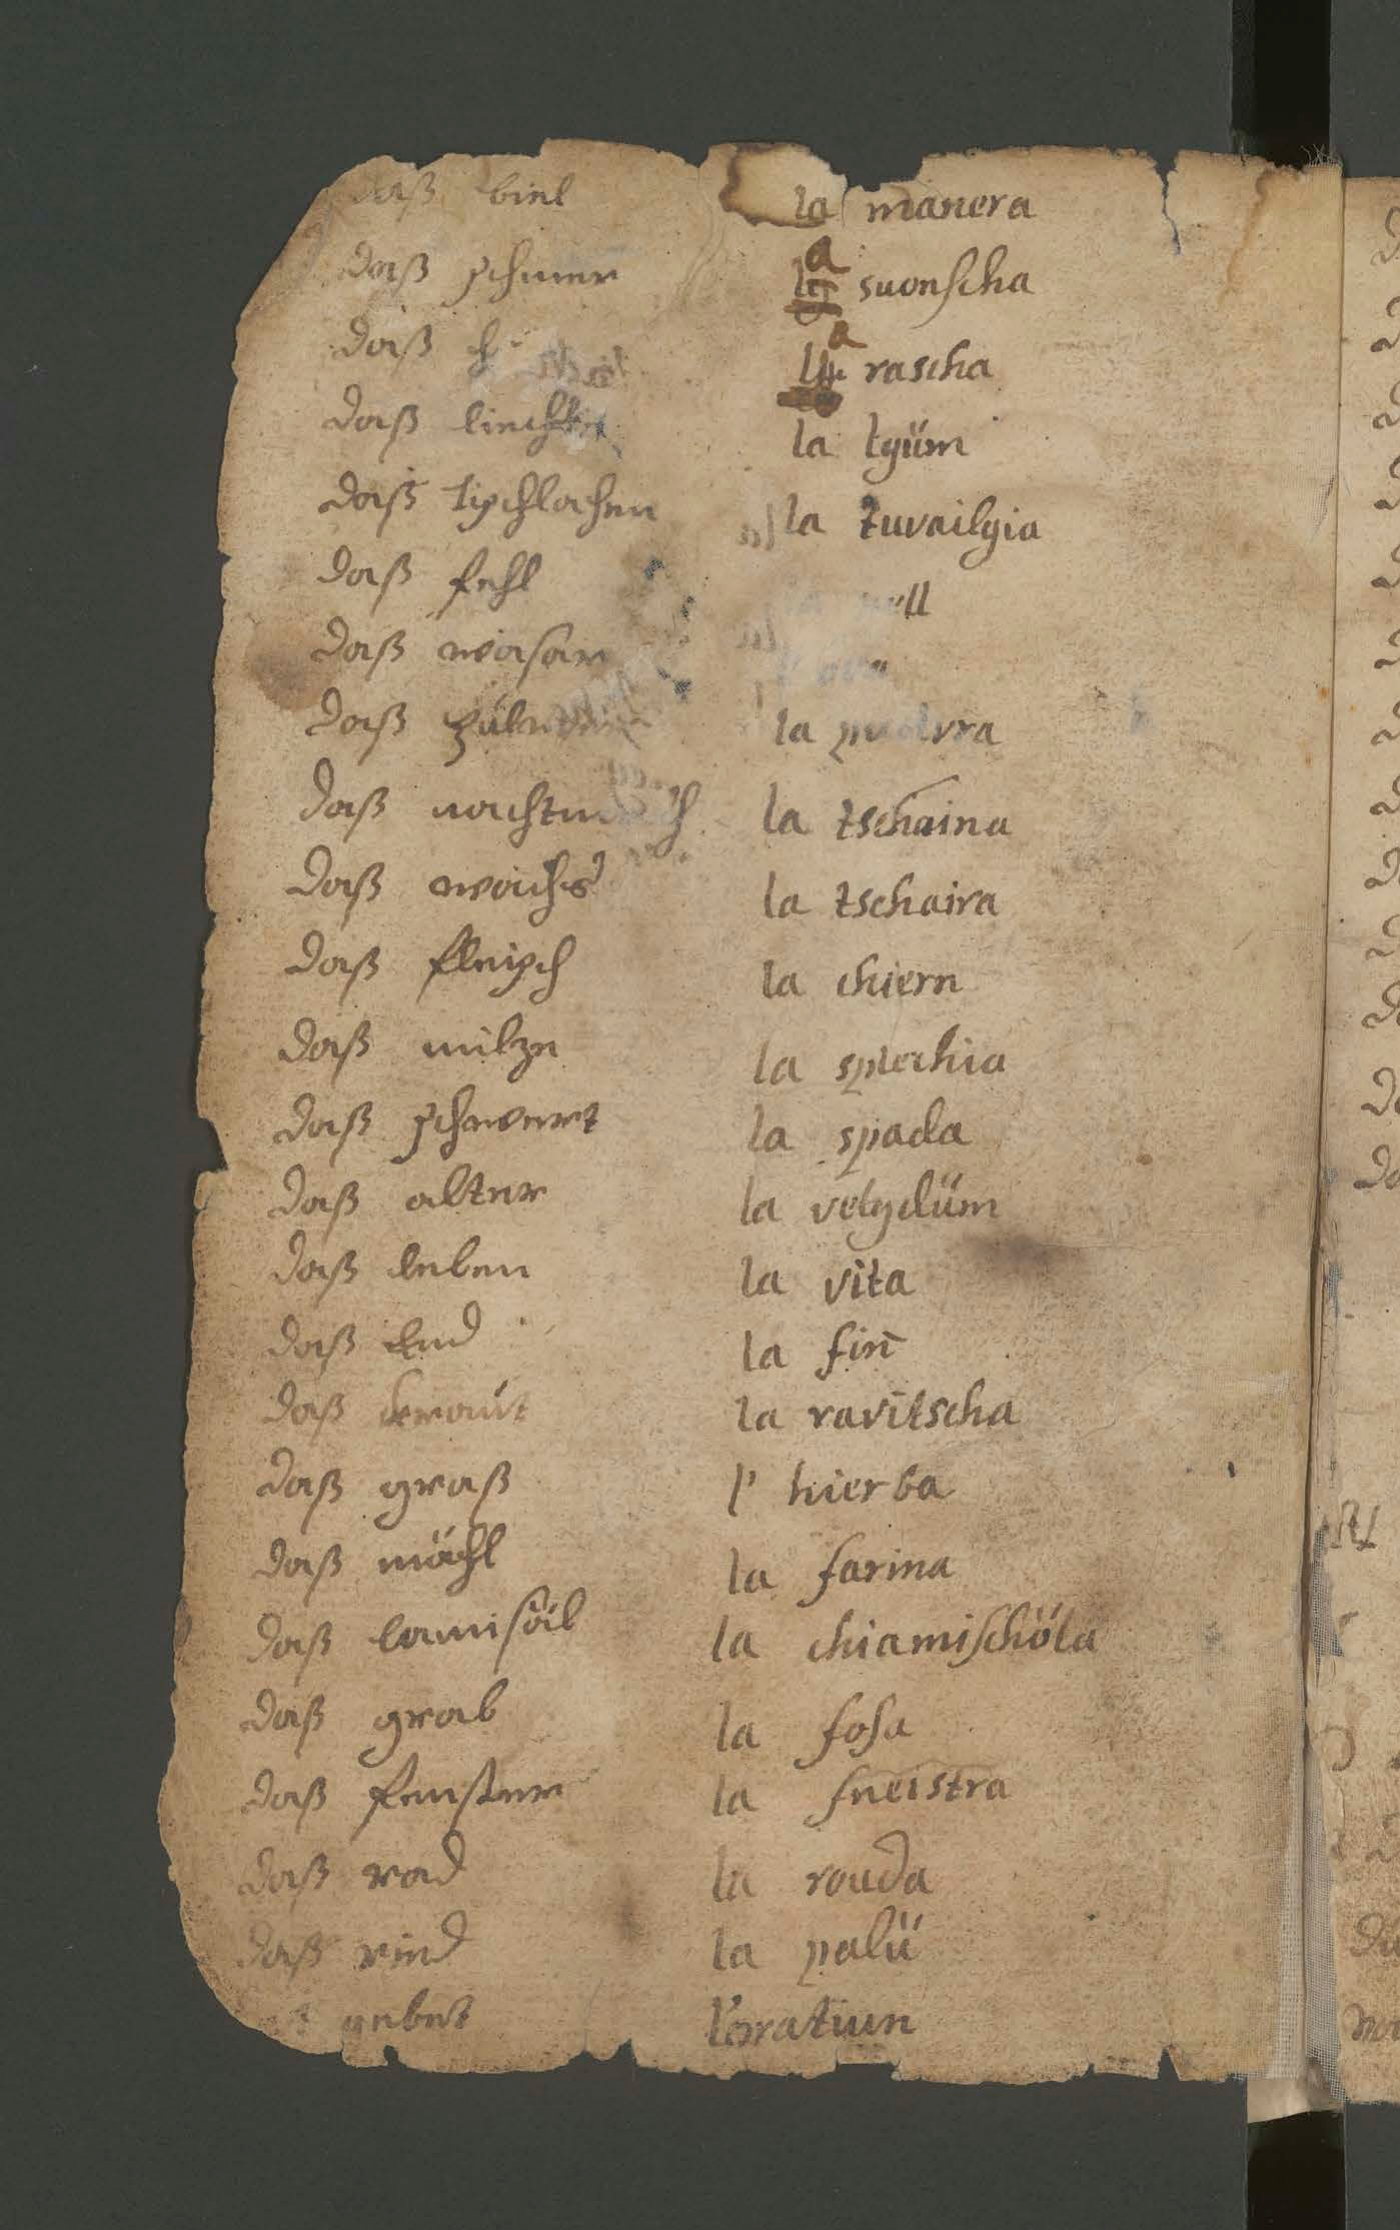 daß biel la manera
daß schmer la suonscha
daß la rascha
daß liecht la lgüm
daß tischlachen la tuvailgia
daß fehl ell
daß wasar
daß la
daß nachtm la tschaina
daß wachs la tschaira
daß fleisch la chiern
daß milze la splechia
daß schwert la spada
daß alter la velgdüm
daß leben la vita
daß End la fin
daß kraut la ravitscha
daß graß l' hierba
daß mähl la farina
daß camisöl la chiamischöla
daß grab la fosa
daß fenster la fneistra
daß rad la rouda
daß ried la palü
gebet l'orratiun